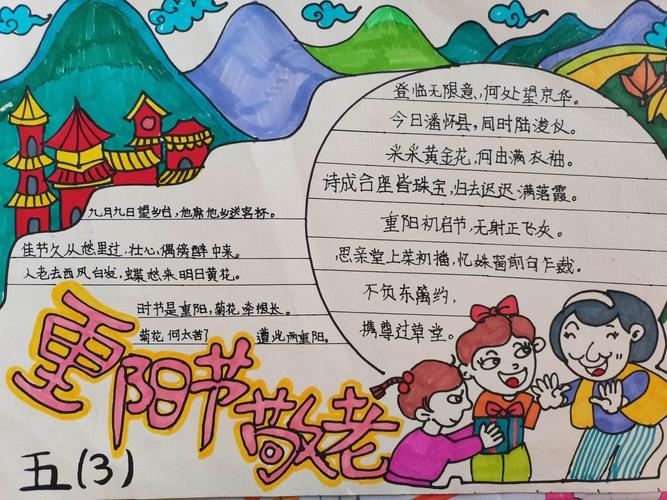 登临无限意,何处望京华。
今日潘怀县,同时陆浚仪。
采采黄金花,何由满衣袖。
诗成合座皆珠宝,归去迟迟满落霞。
重阳初启节,无射正飞。
思亲堂上初插,忆妹窗前乍裁。
不负东篱约,
携尊过草堂。
九月九日望乡台,他席他乡送客杯。
佳节久从愁里过,壮心偶傍醉中来。
人老去西风白发,蝶愁来明日黄花。
时节是重阳,菊花牵恨长。
菊花何太苦? 遭此两重阳。
重阳节敬老
五(3)